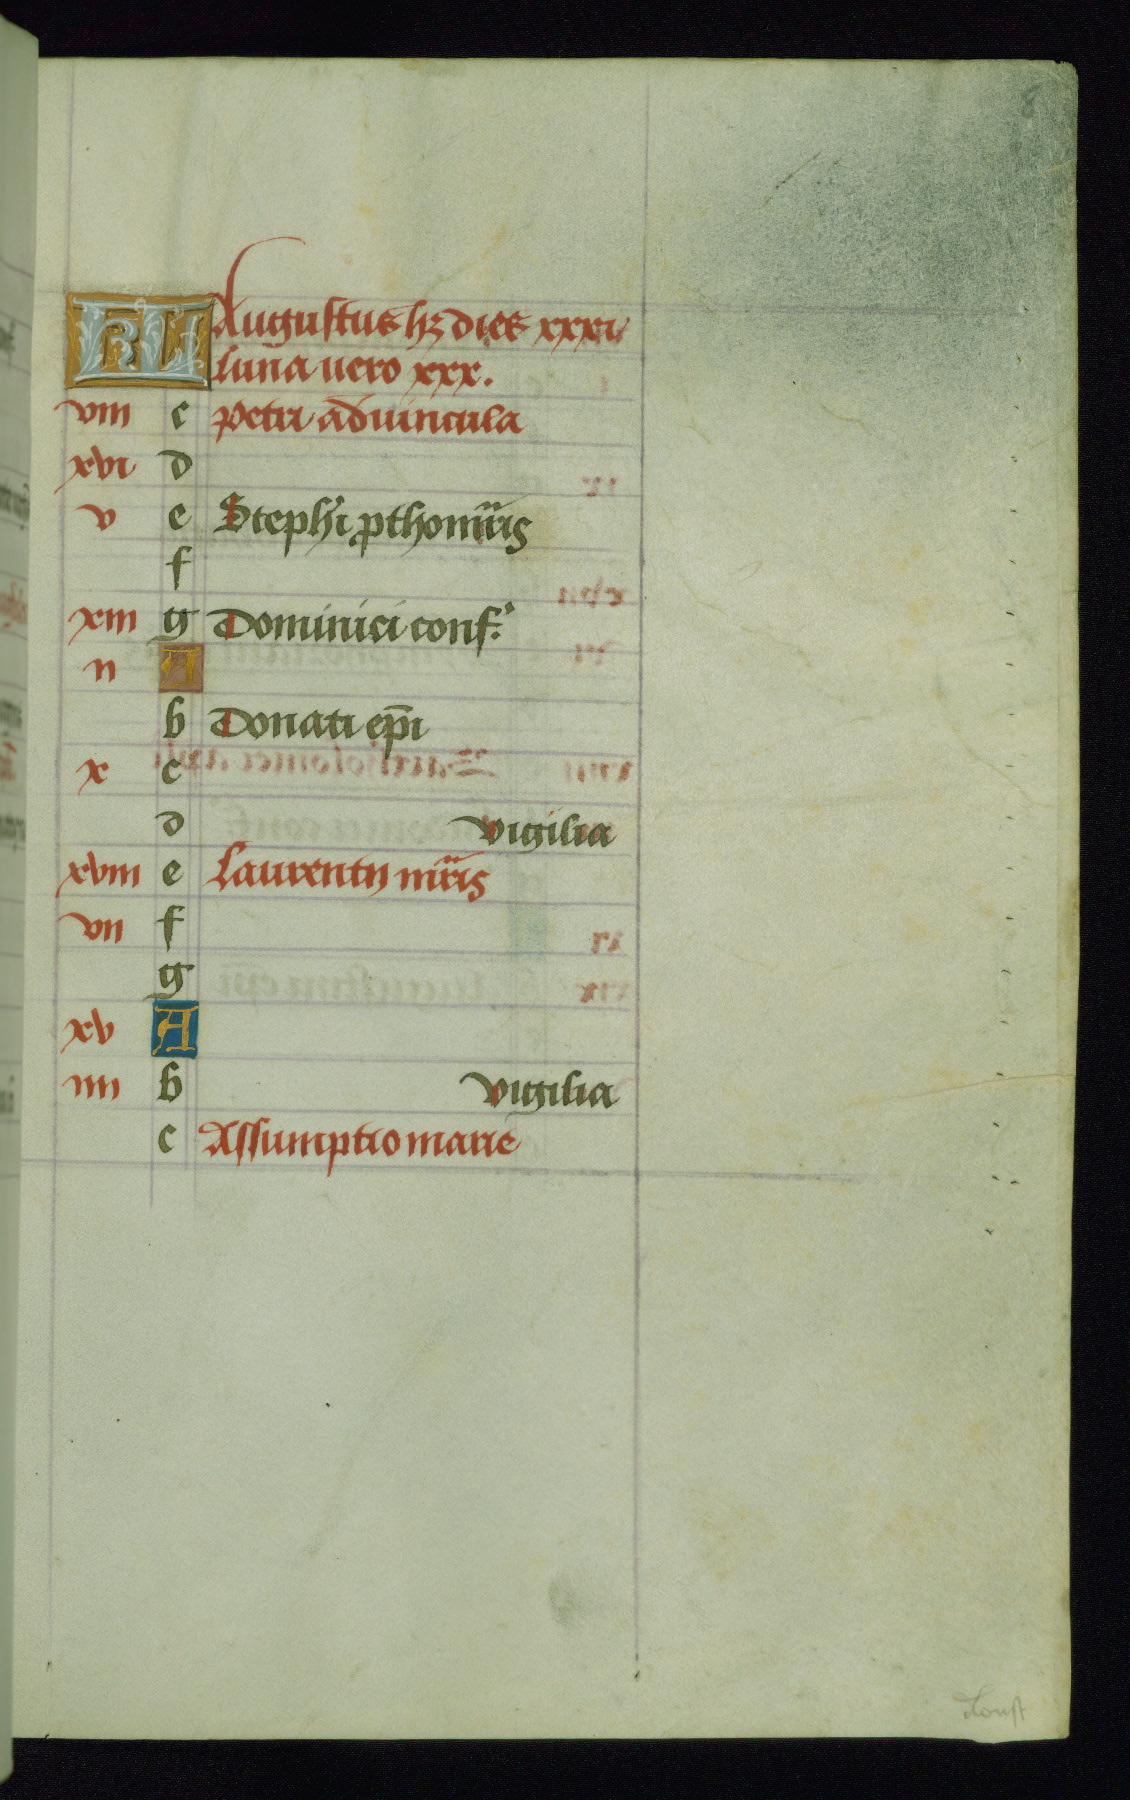 KL Augustus hz dies xxxi
luna vero xxx.
viii c Petri advincula
xvi d
v e Stephi pthomris
f
xiii g Dominici conf.
ii A
b Donati epi
x c
d Vigilia
xviii e Laurentii mris
vii f
g
xv A
iiii b Vigilia
c Assumptio marie